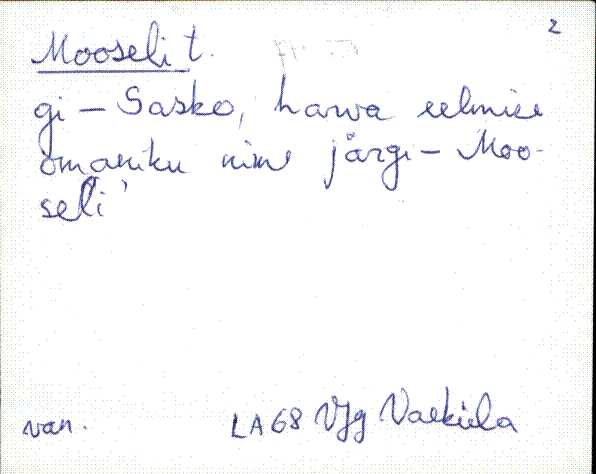 2
Mooseli t.
gi – Sasko, harva eelmise
omaniku nime järgi – Moo-
seli'
van.
LA68 VJg Vaeküla